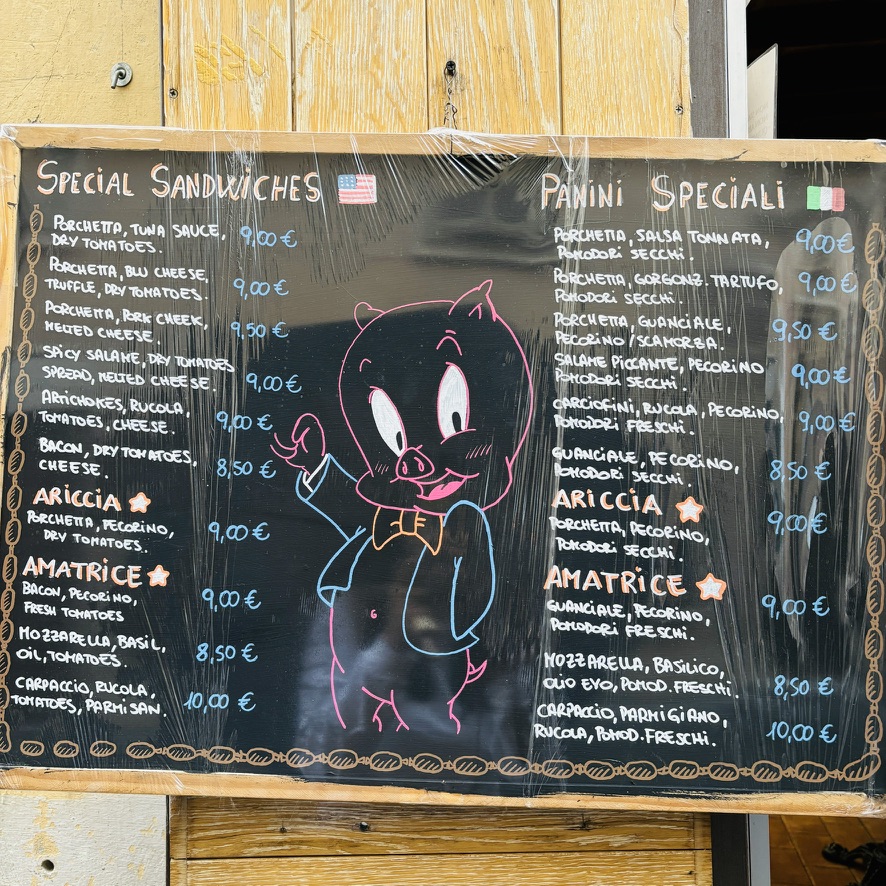 SPECIAL SANDWICHES
PORCHETTA, TUNA SAUCE,
DRY TOMATOES. 9,00 €
PORCHETTA, BLU CHEESE,
TRUFFLE, DRY TOMATOES. 9,00 €
PORCHETTA, PORK CHEEK,
MELTED CHEESE. 9,50 €
SPICY SALAME, DRY TOMATOES
SPREAD, MELTED CHEESE. 9,00 €
ARTICHOKES, RUCOLA,
TOMATOES, CHEESE. 9,00 €
BACON, DRY TOMATOES,
CHEESE. 8,50 €
ARICCIA
PORCHETTA, PECORINO,
DRY TOMATOES. 9,00 €
AMATRICE
BACON, PECORINO,
FRESH TOMATOES 9,00 €
MOZZARELLA, BASIL,
OIL, TOMATOES. 8,50 €
CARPACCIO, RUCOLA,
TOMATOES, PARMISAN. 10,00 €
PANINI SPECIALI
PORCHETTA, SALSA TONNATA,
POMODORI SECCHI. 9,00 €
PORCHETTA, GORGONZ. TARTUFO,
POMODORI SECCHI. 9,00 €
PORCHETTA, GUANCIALE,
PECORINO/SCAMORZA. 9,50 €
SALAME PICCANTE, PECORINO
POMODORI SECCHI. 9,00 €
CARCIOFINI, RUCOLA, PECORINO,
POMODORI FRESCHI. 9,00 €
GUANCIALE, PECORINO,
POMODORI SECCHI. 8,50 €
ARICCIA
PORCHETTA, PECORINO,
POMODORI SECCHI. 9,00 €
AMATRICE
GUANCIALE, PECORINO,
POMODORI FRESCHI. 9,00 €
MOZZARELLA, BASILICO,
OLIO EVO, POMOD. FRESCHI. 8,50 €
CARPACCIO, PARMIGIANO,
RUCOLA, POMOD. FRESCHI. 10,00 €